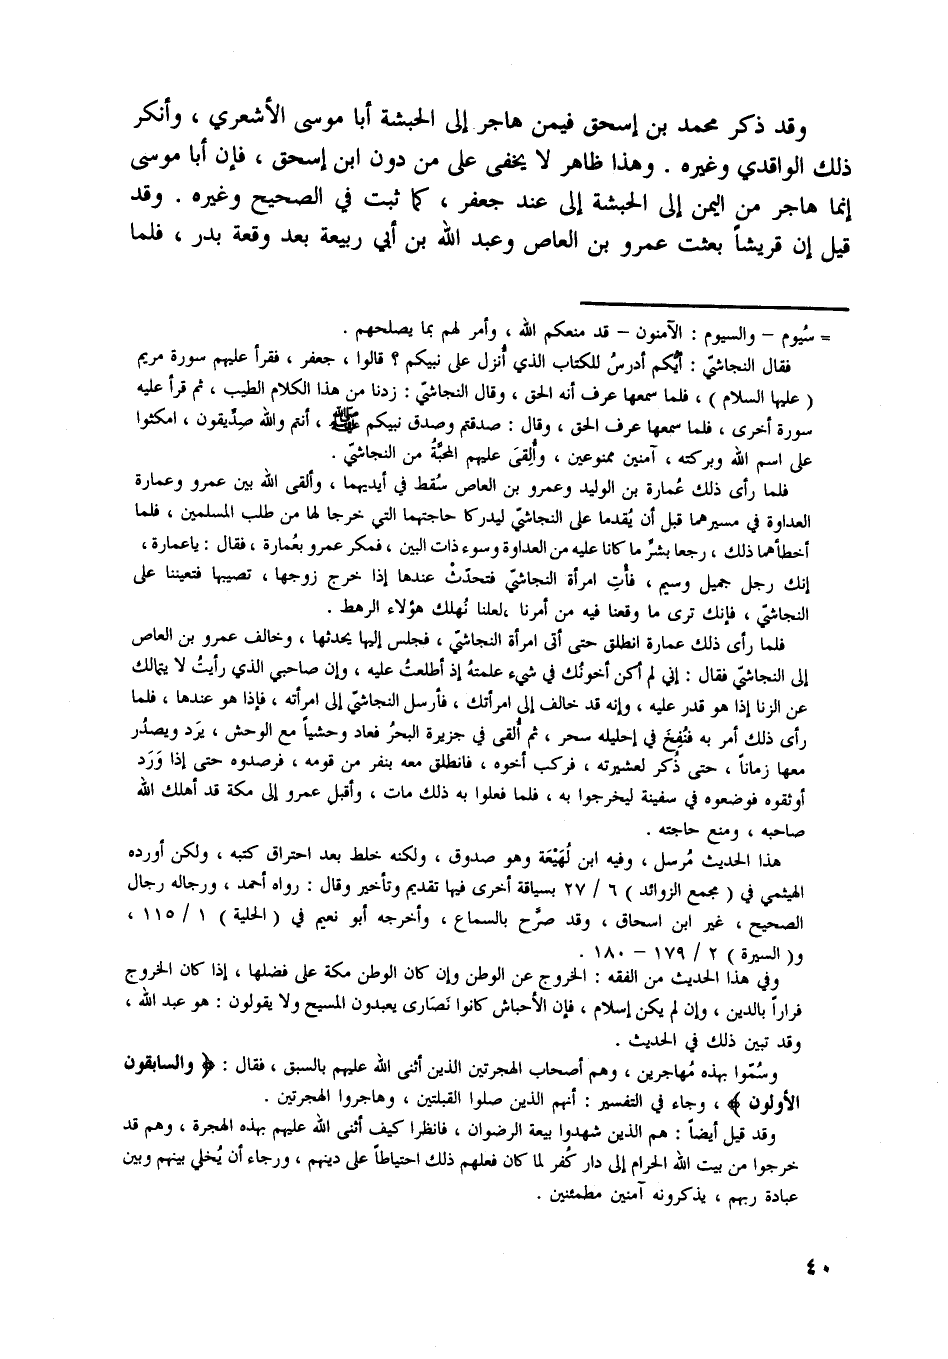 وقد ذكر محمد بن إسحق فيمن هاجر إلى الحبشة أبا موسى الأشعري ، وأنكر
ذلك الواقدي وغيره . وهذا ظاهر لا يخفى على من دون ابن إسحق ، فإن أبا موسى
إنما هاجر من اليمن إلى الحبشة إلى عند جعفر ، كما ثبت في الصحيح وغيره . وقد
قيل إن قريشاً بعثت عمرو بن العاص وعبد الله بن أبي ربيعة بعد وقعة بدر ، فلما
= سُيوم – والسيوم : الآمنون – قد منعكم الله ، وأمر لهم بما يصلحهم .
فقال النجاشيّ : أيُّكم أدرسُ للكتاب الذي أُنزل على نبيكم ؟ قالوا ، جعفر ، فقرأ عليهم سورة مريم
( عليها السلام ) ، فلما سمعها عرف أنه الحق ، وقال النجاشيّ : زدنا من هذا الكلام الطيب ، ثم قرأ عليه
سورة أخرى ، فلما سمعها عرف الحق ، وقال : صدقتم وصدق نبيكم ﷺ ، أنتم والله صِدِّيقون ، امكثوا
على اسم الله وبركته ، آمنين ممنوعين ، وأُلقيَ عليهم المحبَّةُ من النجاشيّ .
فلما رأى ذلك عُمارة بن الوليد وعمرو بن العاص سُقط في أيديهما ، وألقى الله بين عمرو وعمارة
العداوة في مسيرهما قبل أن يُقدما على النجاشيّ ليدركا حاجتهما التي خرجا لها من طلب المسلمين ، فلما
أخطأهما ذلك ، رجعا بشرِّ ما كانا عليه من العداوة وسوء ذات البين ، فمكر عمرو بعُمارة ، فقال : ياعمارة ،
إنك رجل جميل وسيم ، فأتِ امرأة النجاشيّ فتحدّثْ عندها إذا خرج زوجها ، تصيبها فتعيننا على
النجاشيّ ، فإنك ترى ما وقعنا فيه من أمرنا ،لعلنا نُهلك هؤلاء الرهط .
فلما رأى ذلك عمارة انطلق حتى أتى امرأة النجاشيّ ، فجلس إليها يحدثها ، وخالف عمرو بن العاص
إلى النجاشيّ فقال : إني لم أكن أخونُك في شيء علمتهُ إذ أطلعتُ عليه ، وإن صاحبي الذي رأيتُ لا يتمالك
عن الزنا إذا هو قدر عليه ، وإنه قد خالف إلى امرأتك ، فأرسل النجاشيّ إلى امرأته ، فإذا هو عندها ، فلما
رأى ذلك أمر به فنُفِخَ في إحليله سحر ، ثم أُلقى في جزيرة البحرُ فعاد وحشياً مع الوحش ، يَرد ويصدُر
معها زماناً ، حتى ذُكر لعشيرته ، فركب أخوه ، فانطلق معه بنفر من قومه ، فرصدوه حتى إذا وَرَد
أوثقوه فوضعوه في سفينة ليخرجوا به ، فلما فعلوا به ذلك مات ، وأقبل عمرو إلى مكة قد أهلك الله
صاحبه ، ومنع حاجته .
هذا الحديث مُرسل ، وفيه ابن لُهَيْعَة وهو صدوق ، ولكنه خلط بعد احتراق كتبه ، ولكن أورده
الهيثمي في ( مجمع الزوائد ) ٦ / ٢٧ بسياقة أخرى فيها تقديم وتأخير وقال : رواه أحمد ، ورجاله رجال
الصحيح ، غير ابن اسحاق ، وقد صرَّح بالسماع ، وأخرجه أبو نعيم في ( الحلية ) ١ / ١١٥ ،
و( السيرة ) ٢ / ١٧٩ – ١٨٠ .
وفي هذا الحديث من الفقه : الخروج عن الوطن وإن كان الوطن مكة على فضلها ، إذا كان الخروج
فراراً بالدين ، وإن لم يكن إسلام ، فإن الأحباش كانوا نَصَارى يعبدون المسيح ولا يقولون : هو عبد الله ،
وقد تبين ذلك في الحديث .
وسُمّوا بهذه مُهاجرين ، وهم أصحاب الهجرتين الذين أثنى الله عليهم بالسبق ، فقال : ﴿ والسابقون
الأولون ﴾ ، وجاء في التفسير : أنهم الذين صلوا القبلتين ، وهاجروا الهجرتين .
وقد قيل أيضاً : هم الذين شهدوا بيعة الرضوان ، فانظرا كيف أثنى الله عليهم بهذه الهجرة ، وهم قد
خرجوا من بيت الله الحرام إلى دار كُفر لما كان فعلهم ذلك احتياطاً على دينهم ، ورجاء أن يُخلي بينهم وبين
عبادة ربهم ، يذكرونه آمنين مطمئنين .
٤٠